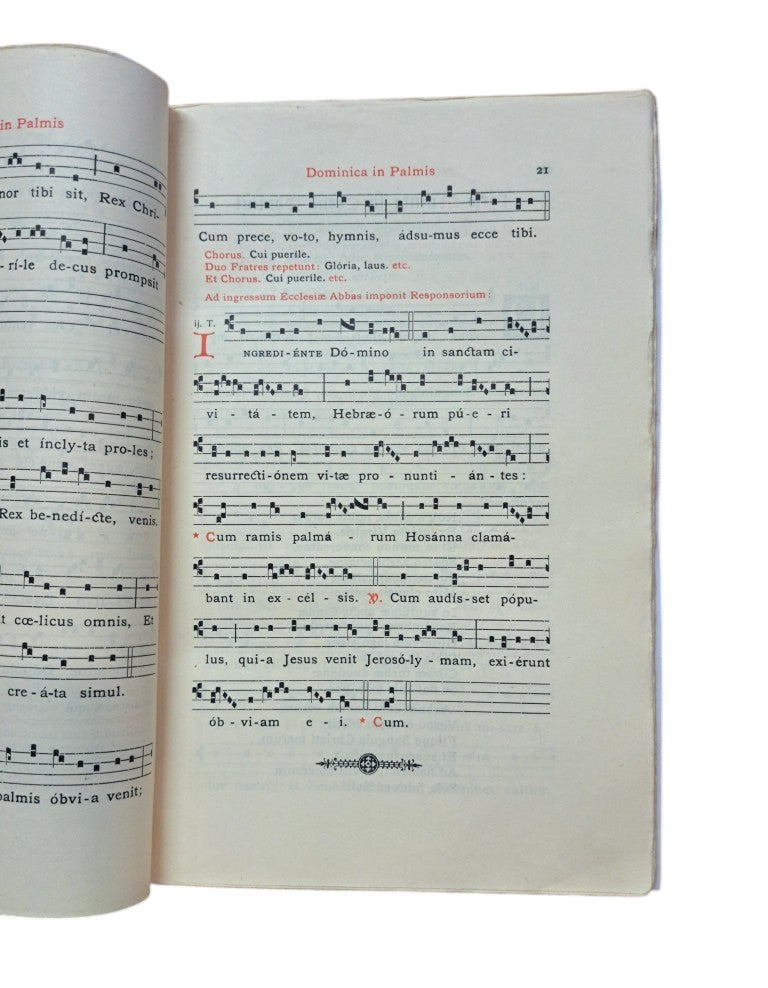 in Palmis
nor tibi sit, Rex Chri-
-rí-le de-cus prompsit
is et íncly-ta pro-les;
Rex be-nedí-cte, venis.
t cœ-licus omnis, Et
cre-á-ta simul.
palmis óbvi-a venit;
Dominica in Palmis 21
Cum prece, vo-to, hymnis, ádsu-mus ecce tibi.
Chorus. Cui puerile.
Duo Fratres repetunt: Glória, laus. etc.
Et Chorus. Cui puerile. etc.
Ad ingressum Ecclesiæ Abbas imponit Responsorium:
ij. T.
INGREDI-ÉNTE Dó-mino in sanctam ci-
vi - tá - tem, Hebræ-ó - rum pú-e - ri
resurrecti-ónem vi-tæ pro - nunti - án-tes:
* Cum ramis palmá - rum Hosánna clamá-
bant in ex-cél - sis. ℣. Cum audís-set pópu-
lus, qui-a Jesus venit Jerosó-ly-mam, exi-érunt
ób - vi-am e - i. * Cum.